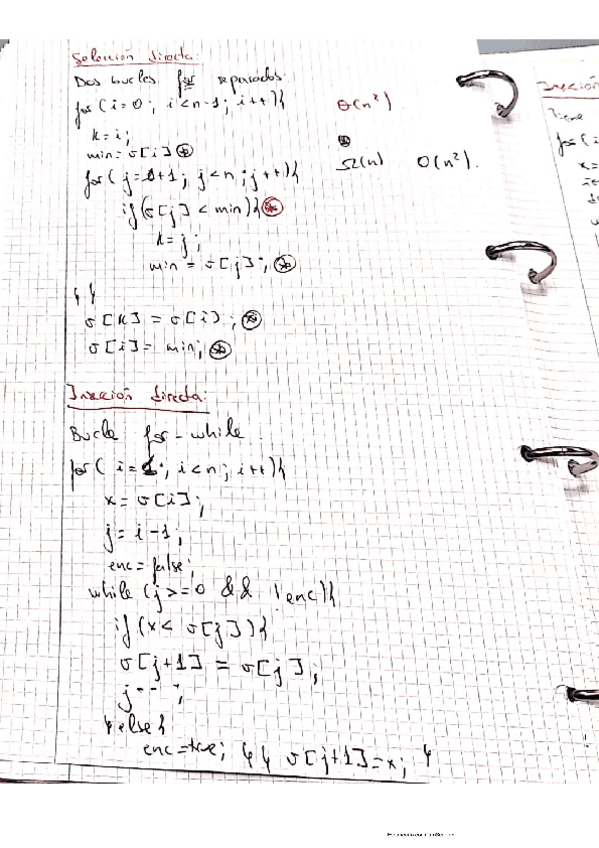 Selección directa:
Dos bucles for separados.
for (i=0; i<n-1; i++){
k=i;
min=v[i] ⊛
for (j=i+1; j<n; j++){
if(v[j] < min){ ⊛
k=j;
min = v[j]; ⊛
} }
v[k] = v[i]; ⊛
v[i] = min; ⊛
Θ(n²).
⊛
Ω(n) O(n²).
Inserción directa:
Bucle for-while.
for( i=1; i<n; i++){
x=v[i];
j=i-1;
enc=false;
while (j>=0 && !enc){
if(x< v[j]){
v[j+1] = v[j];
j--;
}else{
enc=true; } } v[j+1]=x; }
for (i
x=